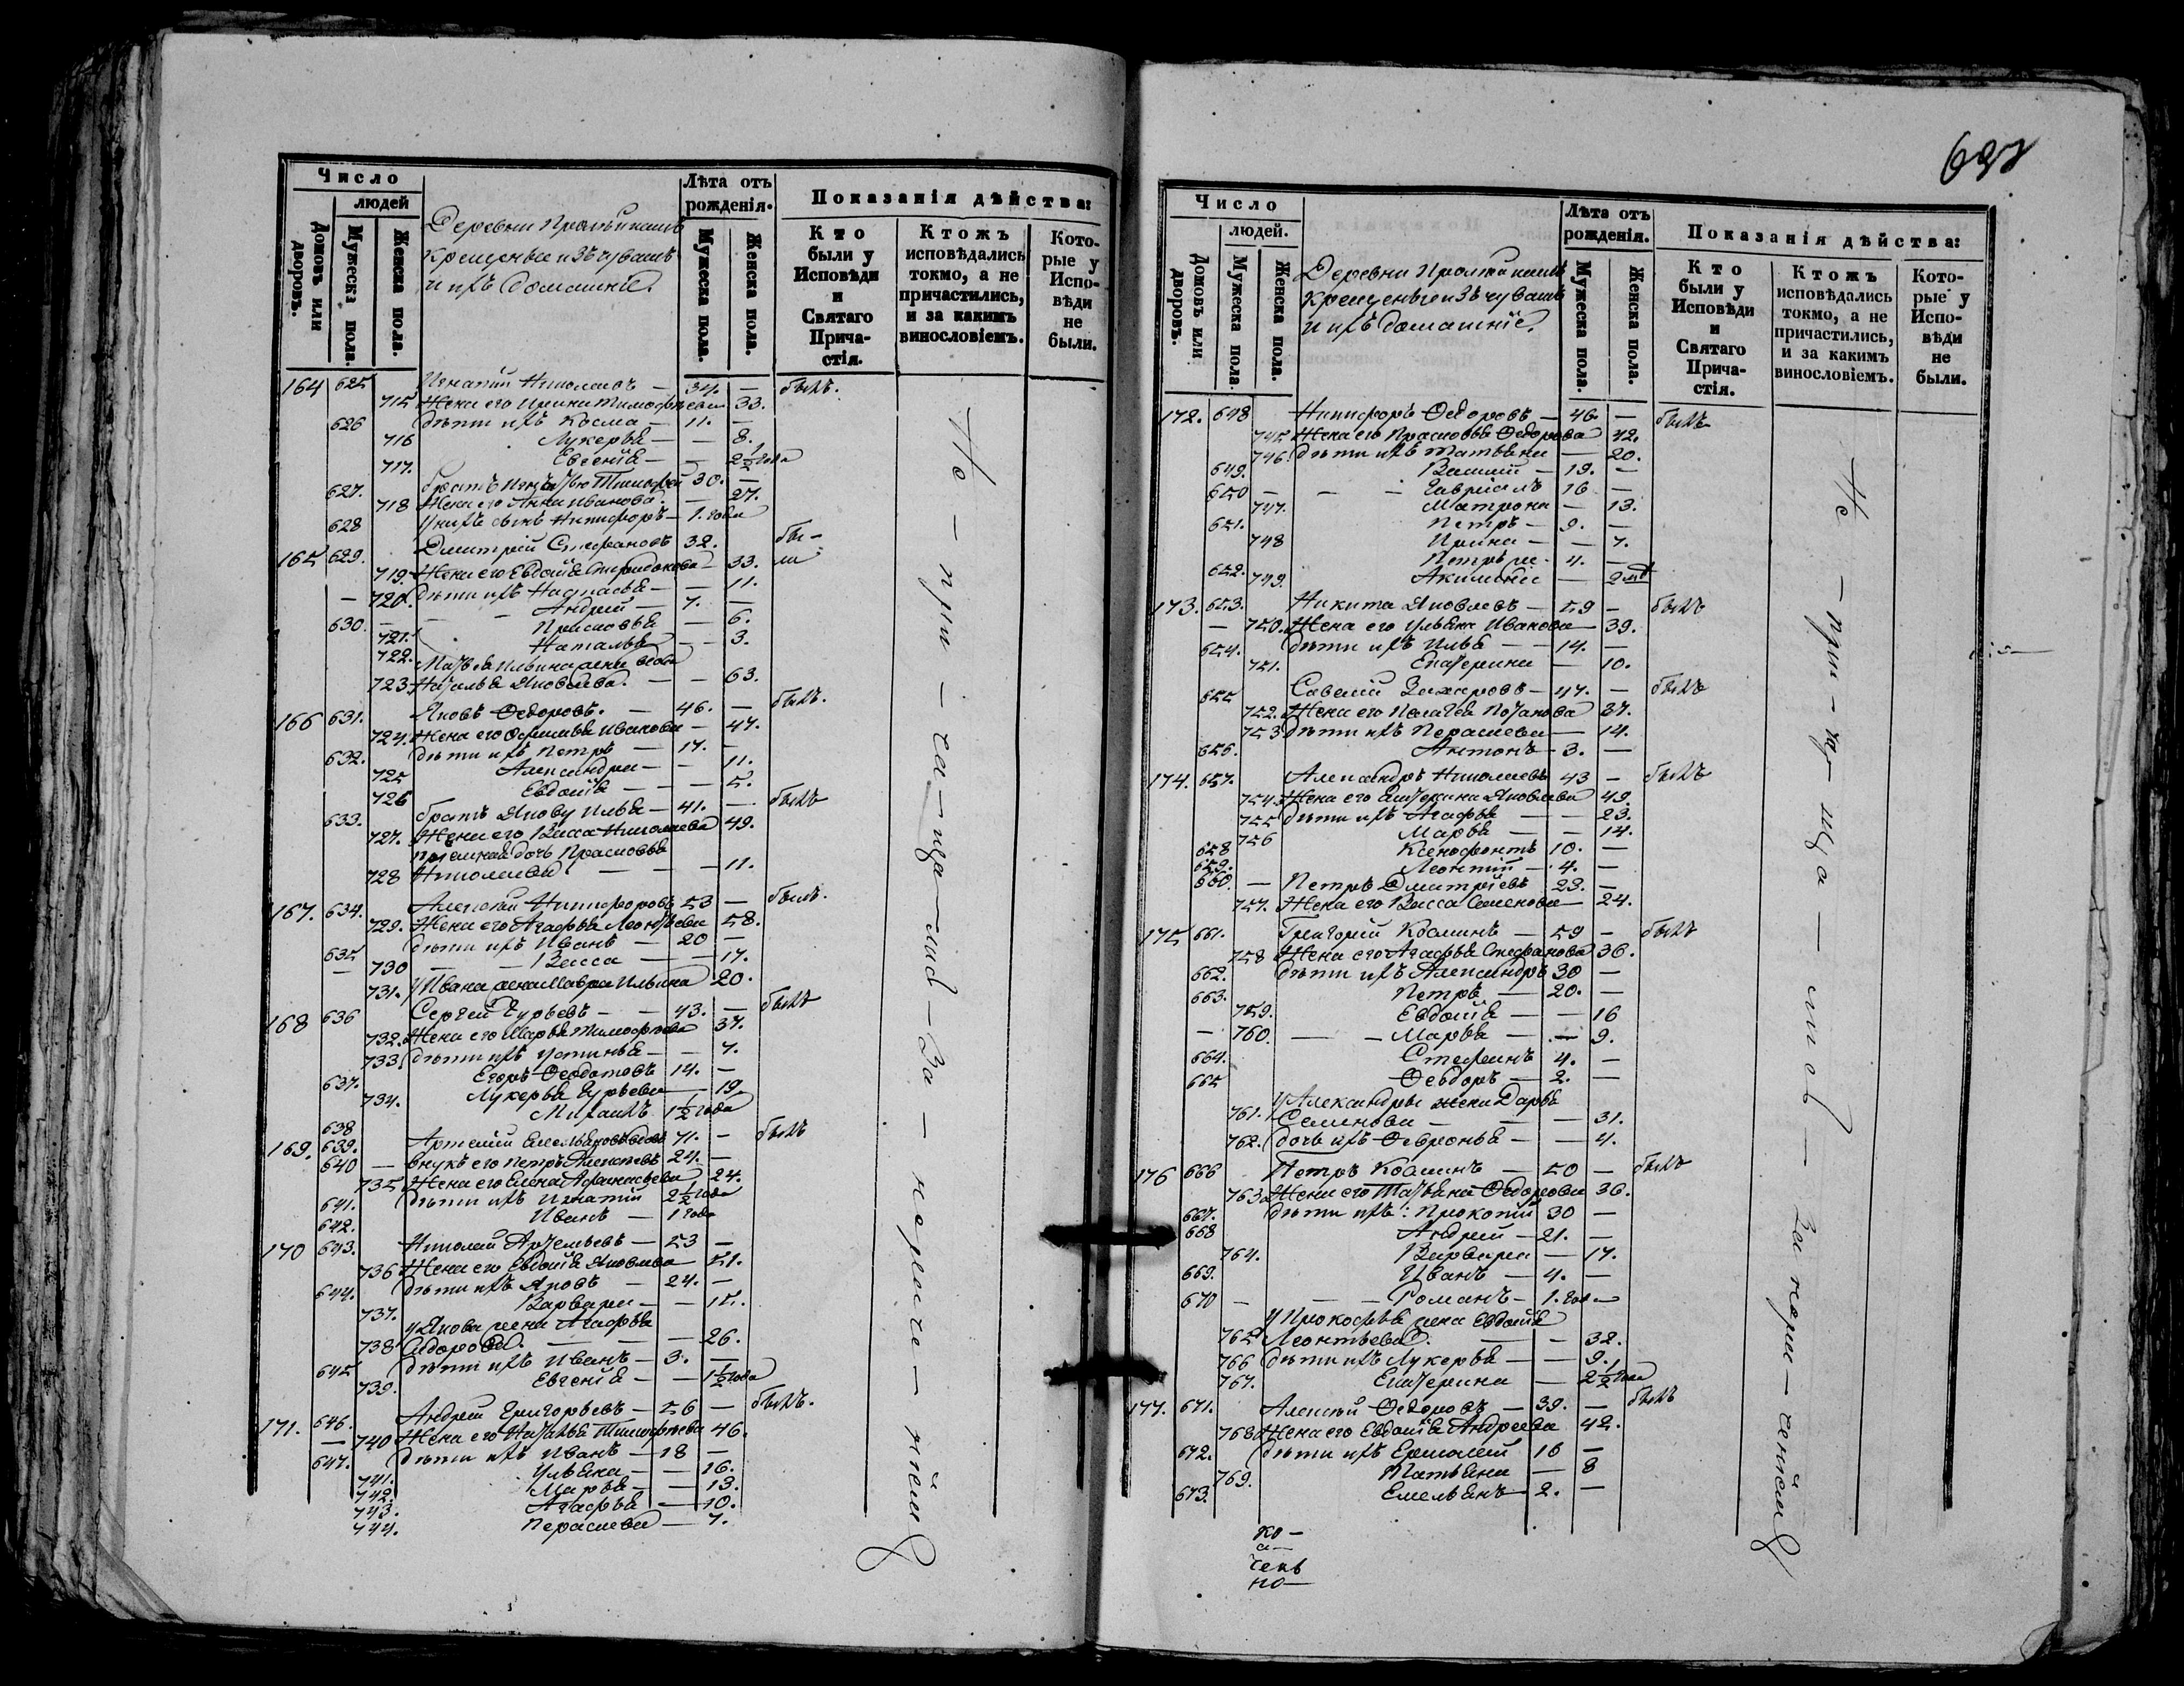 Число
людей
Домовъ или дворовъ.
Мужеска пола.
Женска пола.
крещеные изъ чувашъ
и ихъ домашніе.
Лѣта отъ рожденія.
Мужеска пола.
Женска пола.
Показанія дѣйства:
Кто были у Исповѣди и Святаго Причастія.
Ктожъ исповѣдались токмо, а не причастились, и за какимъ винословіемъ.
Которые у Исповѣди не были.
164 625 Игнатій Николаевъ — 34. — былъ.
715 Жена его Ирина Тимофѣева 33.
626 дѣти ихъ Косма — 11. —
716 Лукерья — — 8.
717. Евгенія — — 2 1/2 года
627. братъ Игнатью Тимофей 30. —
718 Жена его Анна Иванова. — 27.
628 у нихъ сынъ Никифоръ — 1. года
165 629. Дмитрій Стефановъ 32. бы-
719. Жена его Евдокія Спиридонова — 33. ли
720. дѣти ихъ Настасья — — 11.
630. Андрей — 7. —
721. Прасковья — 6.
722. Наталья — — 3.
723. Наталья Яковлева. — — 63.
166 631. Яковъ Ѳедоровъ. — 46. — былъ.
724. Жена его Офимья Иванова — 47.
632. дѣти ихъ Петръ — 17. —
725 Александра — — 11.
726 Евдокія — — — 5.
633. братъ Якову Илья — 41. — былъ
727. Жена его Васса Николаева 49.
пріемная дочь Прасковья
728 Николаева — — — 11.
167. 634. Алексѣй Никифоровъ 53 — былъ.
729. Жена его Агафья Леонтьева 58.
635 дѣти ихъ Иванъ — 20 —
— 730 — Васса — — 17.
731. у Ивана жена Мавра Ильина 20.
168 636 Сергей Гурьевъ — — 43. — былъ
732. Жена его Марья Тимофѣева 37.
733 дѣти ихъ Устинья — — 7.
637. Егоръ Ѳедотовъ 14. —
734. Лукерья Гурьева — 19.
638 Михаилъ 1 1/2 года
169. 639. Артемій Емельяновъ вдовъ 71. — былъ
640 — внукъ его Петръ Алексѣевъ 24. —
735 Жена его Елена Афанасьева 24.
641. дѣти ихъ Игнатій 2 1/2 года
642. Иванъ — 1 года
170 643. Николай Артемьевъ — 53 —
736 Жена его Евдокія Яковлева — 51.
644. дѣти ихъ Яковъ — 24. —
737. Варвара — — 15.
у Якова жена Агафья
738 Сидорова. — — — 26.
645 дѣти ихъ Иванъ — 3. —
739. Евгенія — — 1 1/2 года
171. 646. Андрей Григорьевъ — 56 — былъ.
— 740 Жена его Наталья Тимофѣева 46.
647. дѣти ихъ Иванъ — 18 —
741. Ульяна — — 16.
742. Марья — — 13.
743. Агафья — — 10.
744. Параскева — 7.
Не — при — ча — ща — лись — За — нераче — ніем
Число
людей.
Домовъ или дворовъ.
Мужеска пола.
Женска пола.
крещеные изъ чувашъ
и ихъ домашніе.
Лѣта отъ рожденія.
Мужеска пола.
Женска пола.
Показанія дѣйства:
Кто были у Исповѣди и Святаго Причастія.
Ктожъ исповѣдались токмо, а не причастились, и за какимъ винословіемъ.
Которые у Исповѣди не были.
172. 648 Никифоръ Ѳедоровъ — 46. — былъ
745 Жена его Прасковья Ѳедорова 42.
746. дѣти ихъ Татьяна — 20.
649. Василій — 19. —
650 — — — Гавріилъ 16 —
747. Матрона — 13.
651. Петръ — 9. —
748 Ирина — — 7.
652. 4. —
749. Акилина — 2
173. 653. Никита Яковлевъ — 59 — былъ
— 750. Жена его Ульяна Иванова — 39.
654. дѣти ихъ Илья — — 14. —
751. Екатерина — 10.
655 Савелій Захаровъ — 47. — былъ
752. Жена его Пелагея Потапова 37.
753 дѣти ихъ Параскева — 14.
656. Антонъ — 3. —
174. 657. Александръ Николаевъ 43 — былъ
754. Жена его Екатерина Яковлева 49.
755 дѣти ихъ Агафья — — 23.
756 Марья — — 14.
658 Ксенофонтъ 10. —
659. Леонтій — 4. —
660. — Петръ Дмитріевъ 23. —
757. Жена его Васса Семенова — 24.
175 661. Григорій Козминъ — 59 — былъ
758 Жена его Агафья Стефанова 36.
662. дѣти ихъ Александръ 30 —
663. Петръ — 20. —
759. Евдокія — — 16
— 760. — — Марья — — 9.
664. Стефанъ 4. —
665 Ѳеодоръ — 2. —
у Александры жена Дарья
761. Семенова — — — 31.
762. дочь ихъ Ѳевронья — — 4.
176 666 Петръ Козминъ — 50 — былъ
763 Жена его Татьяна Ѳедорова 36.
667. дѣти ихъ: Прокопій 30 —
668 Андрей — 21. —
764. Варвара — 17.
669. Иванъ — 4. —
670 — — — Романъ — 1. года
у Прокофья жена Евдокія
765 Леонтьева. — — 32.
766 дѣти ихъ Лукерья — — 9.
767. Екатерина — 2 1/2 года
177. 671. Алексѣй Ѳедоровъ — 39. — былъ
768 Жена его Евдокія Андреева 42.
672. дѣти ихъ Ермолай 10 —
769. Татьяна — 8
673. Емельянъ — 2. —
Не — при — ча — ща — лись — За нера — ченіем